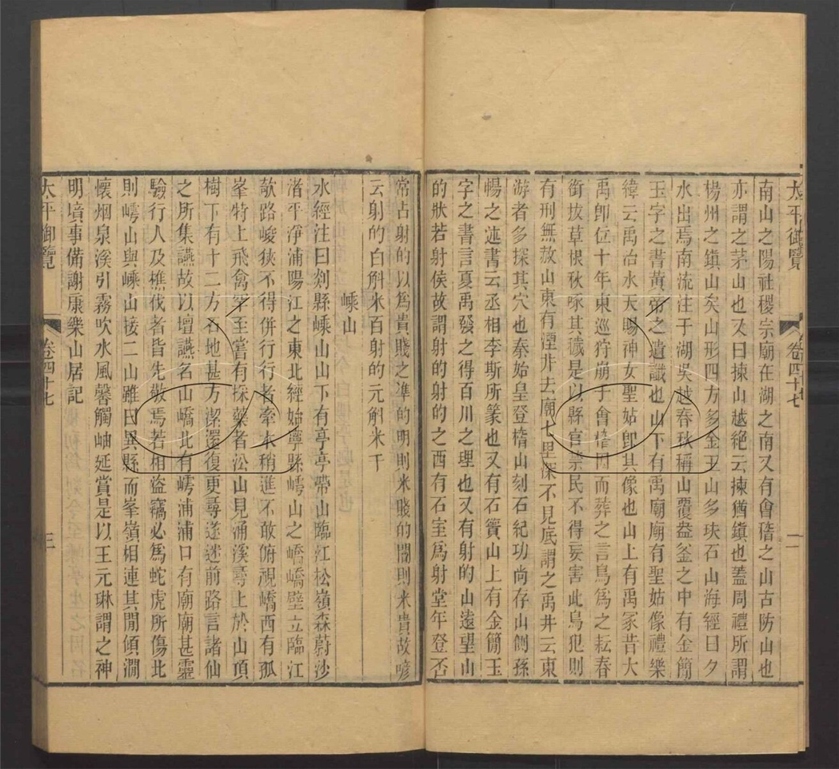 太平御覽 卷四十七 二
南山之陽社稷宗廟在湖之南又有會稽之山古防山也
亦謂之茅山也又曰揀山越絶云揀猶鎮也蓋周禮所謂
楊州之鎮山矣山形四方多金玉山多玦石山海經曰夕
水出焉南流注于湖吳越春秋稱山覆釜之中有金簡
玉字之書黃帝之遺讖也山下有禹廟廟有聖姑像禮樂
緯云禹治水天賜神女聖姑即其像也山上有禹冢昔大
禹即位十年東巡狩崩于會稽因而葬之言鳥爲之耘春
銜拔草根秋啄其穢是以縣官禁民不得妄害此鳥犯則
有刑無赦山東有湮井去廟七里深不見底謂之禹井云東
游者多探其穴也秦始皇登稽山刻石紀功尚存山側孫
暢之述書云丞相李斯所篆也又有石簣山上有金簡玉
字之書言夏禹發之得百川之理也又有射的山遠望山
的狀若射侯故謂射的射的之西有石室爲射堂年登否
常占射的以爲貴賤之準的明則米賤的闇則米貴故諺
云射的白斛米百射的元斛米千
嵊山
水經注曰剡縣嵊山山下有亭亭帶山臨江松嶺森蔚沙
渚平淨浦陽江之東北經始寧縣嶀山之嶠嶠壁立臨江
欹路峻狹不得併行行者牽木稍進不敢俯視嶠西有孤
峯特上飛禽罕至嘗有採藥者沿山見通溪尋上於山頂
樹下有十二方石地甚方潔還復更尋遂迷前路言諸仙
之所集讌故以壇讌名山嶠北有嶀浦浦口有廟廟甚靈
驗行人及樵伐者皆先敬焉若相盜竊必爲蛇虎所傷北
則嶀山與嵊山接二山雖曰異縣而峯嶺相連其間傾澗
懷烟泉溪引霧吹水風馨觸岫延賞是以王元琳謂之神
明境事備謝康樂山居記
太平御覽 卷四十七 三